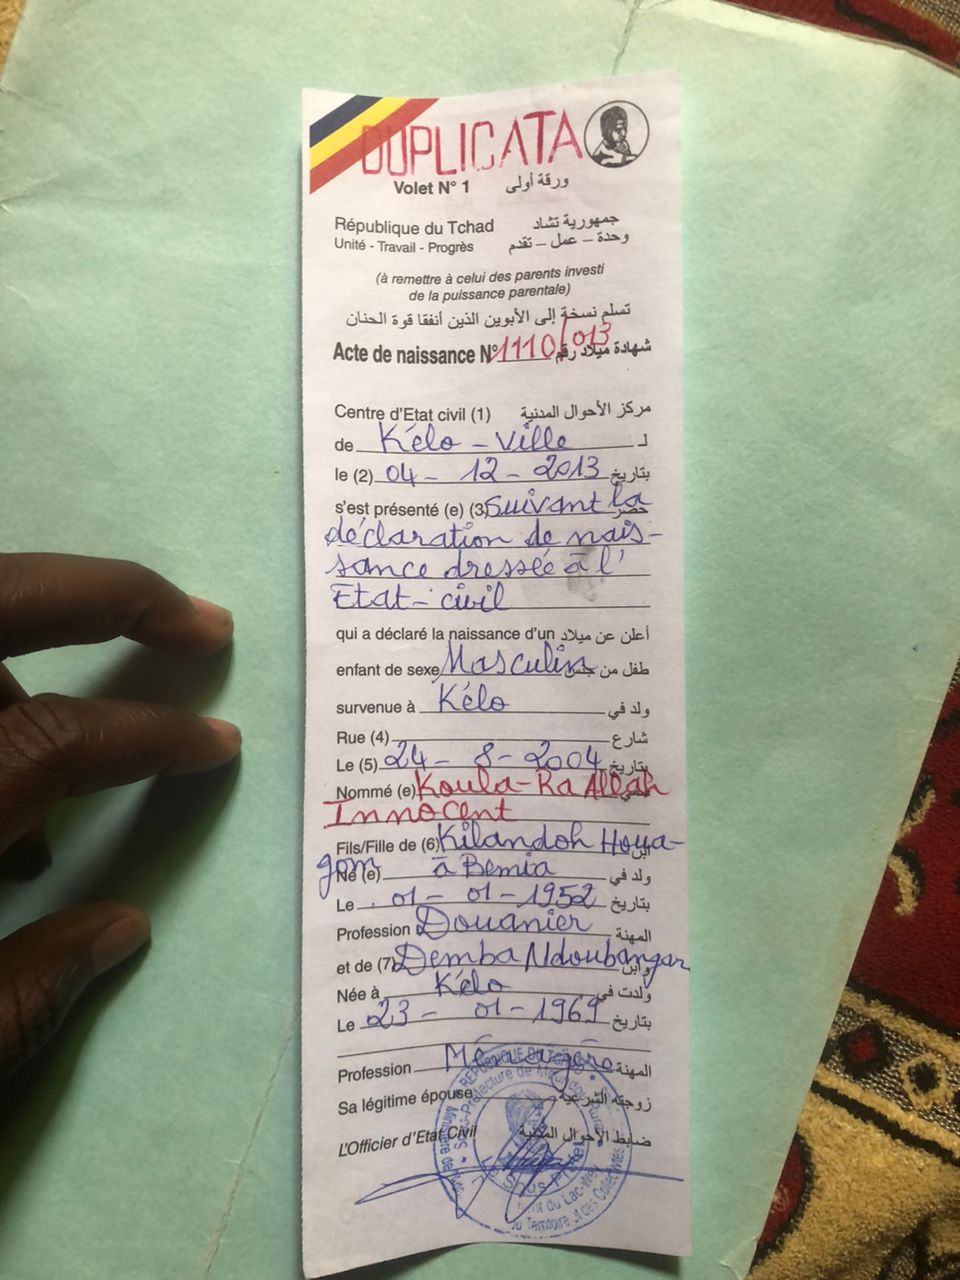 DUPLICATA
Volet N° 1 ورقة أولى
République du Tchad جمهورية تشاد
Unité - Travail - Progrès وحدة – عمل – تقدم
(à remettre à celui des parents investi
de la puissance parentale)
تسلم نسخة إلى الأبوين الذين أنفقا قوة الحنان
Acte de naissance N° 1110/013 شهادة ميلاد رقم
Centre d'Etat civil (1) مركز الأحوال المدنية
de Kélo - Ville لـ
le (2) 04 - 12 - 2013 بتاريخ
s'est présenté (e) (3) Suivant la حضر
déclaration de nais-
sance dressée à l'
Etat - civil
qui a déclaré la naissance d'un أعلن عن ميلاد
enfant de sexe Masculin طفل من جنس
survenue à Kélo ولد في
Rue (4) شارع
Le (5) 24 - 8 - 2004 بتاريخ
Nommé (e) Koula-Ra Allah
Innocent
Fils/Fille de (6) Kilandoh Houa- ابن
gom
Né (e) à Bemia ولد في
Le 01 - 01 - 1952 بتاريخ
Profession Douanier المهنة
et de (7) Demba Ndoubangar وابن
Née à Kélo ولدت في
Le 23 - 01 - 1969 بتاريخ
Profession Ménagère المهنة
Sa légitime épouse زوجته الشرعية
L'Officier d'Etat Civil ضابط الأحوال المدنية
REPUBLIQUE DU TCHAD
Sous-Préfecture de Rurale
Sous-Préfet
du Lac-Wey
du Territoire et des Collectivités